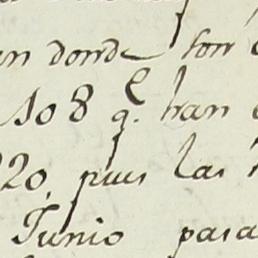 en donde son
108 q.e han
20, pues las
Junio para